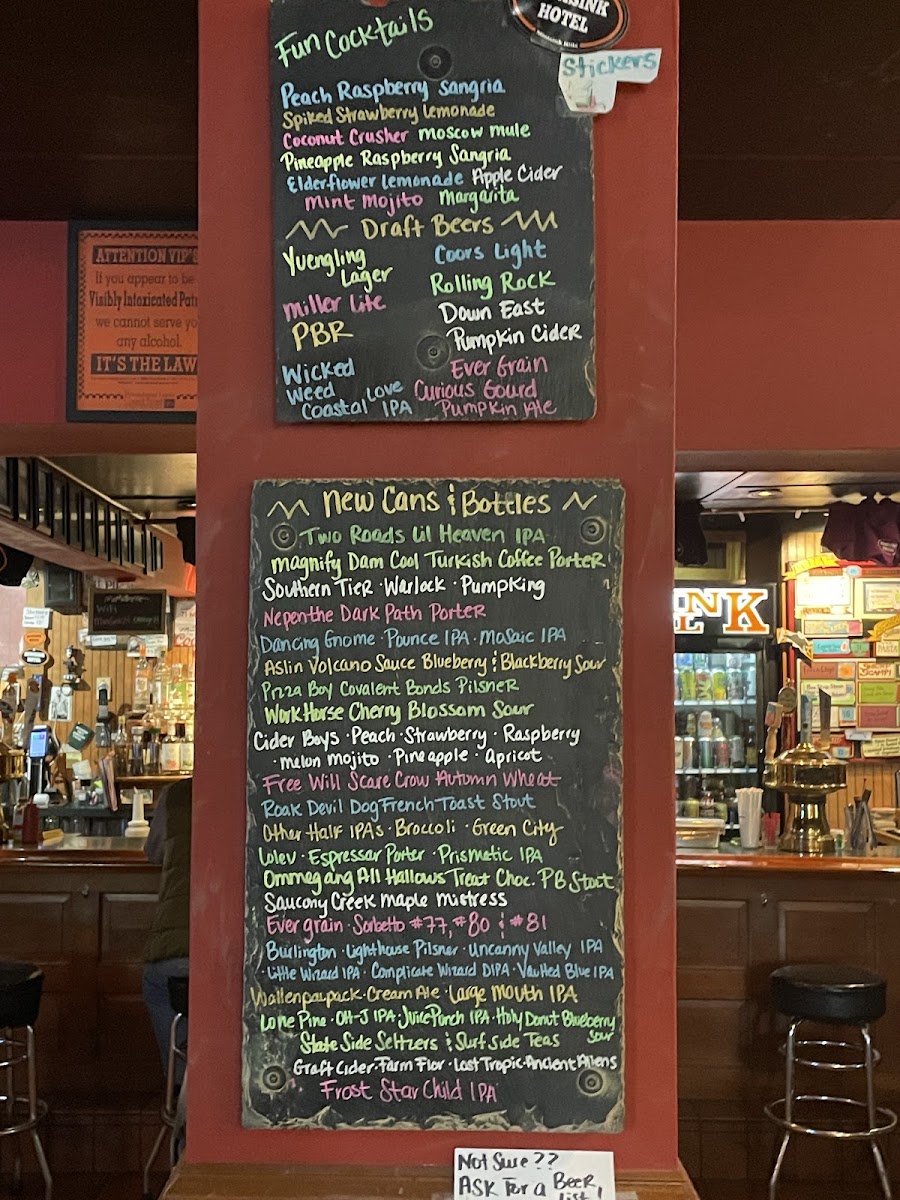 HOTEL
Stickers
Fun Cocktails
Peach Raspberry Sangria
Spiked Strawberry Lemonade
Coconut Crusher Moscow Mule
Pineapple Raspberry Sangria
Elderflower Lemonade Apple Cider
Mint Mojito Margarita
Draft Beers
Yuengling Lager
Coors Light
Miller Lite
Rolling Rock
PBR
Down East Pumpkin Cider
Wicked Weed Coastal Love IPA
Ever Grain Curious Gourd Pumpkin Ale
ATTENTION VIP'S
If you appear to be
Visibly Intoxicated Pat
we cannot serve yo
any alcohol.
IT'S THE LAW
New Cans & Bottles
Two Roads Lil Heaven IPA
Magnify Dam Cool Turkish Coffee Porter
Southern Tier · Warlock · Pumpking
Nepenthe Dark Path Porter
Dancing Gnome · Pounce IPA · Mosaic IPA
Aslin Volcano Sauce Blueberry & Blackberry Sour
Pizza Boy Covalent Bonds Pilsner
WorkHorse Cherry Blossom Sour
Cider Boys · Peach · Strawberry · Raspberry
· Melon Mojito · Pineapple · Apricot
Free Will Scare Crow Autumn Wheat
Roak Devil Dog French Toast Stout
Other Half IPAs · Broccoli · Green City
Wolev · Espressar Porter · Prismatic IPA
Ommegang All Hallows Treat Choc. PB Stout
Saucony Creek Maple Mistress
Ever grain · Sorbetto #77, #80 & #81
Burlington · Lighthouse Pilsner · Uncanny Valley IPA
· Little Wizard IPA · Complicate Wizard DIPA · Vaulted Blue IPA
Wallenpaupack · Cream Ale · Large Mouth IPA
Lone Pine · OH-J IPA · Juice Punch IPA · Holy Donut Blueberry Sour
State Side Seltzers & Surf Side Teas
Graft Cider · Farm Flor · Lost Tropic · Ancient Aliens
Frost Star Child IPA
NK
Not Sure??
ASK For a Beer
list!